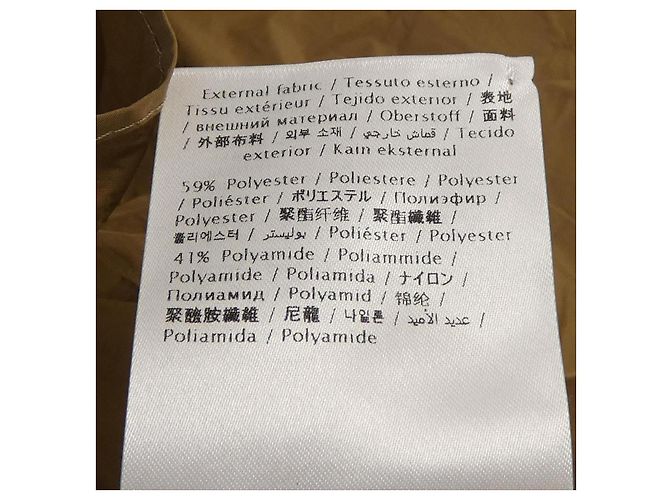 External fabric / Tessuto esterno /
Tissu extérieur / Tejido exterior / 表地
/ внешний материал / Oberstoff / 面料
/ 外部布料 / 외부 소재 / قماش خارجي / Tecido
exterior / Kain eksternal
59% Polyester / Poliestere / Polyester
/ Poliéster / ポリエステル / Полиэфир /
Polyester / 聚酯纤维 / 聚酯纖維 /
폴리에스터 / بوليستر / Poliéster / Polyester
41% Polyamide / Poliammide /
Polyamide / Poliamida / ナイロン /
Полиамид / Polyamid / 锦纶 /
聚醯胺纖維 / 尼龍 / 나일론 / عديد الأميد /
Poliamida / Polyamide